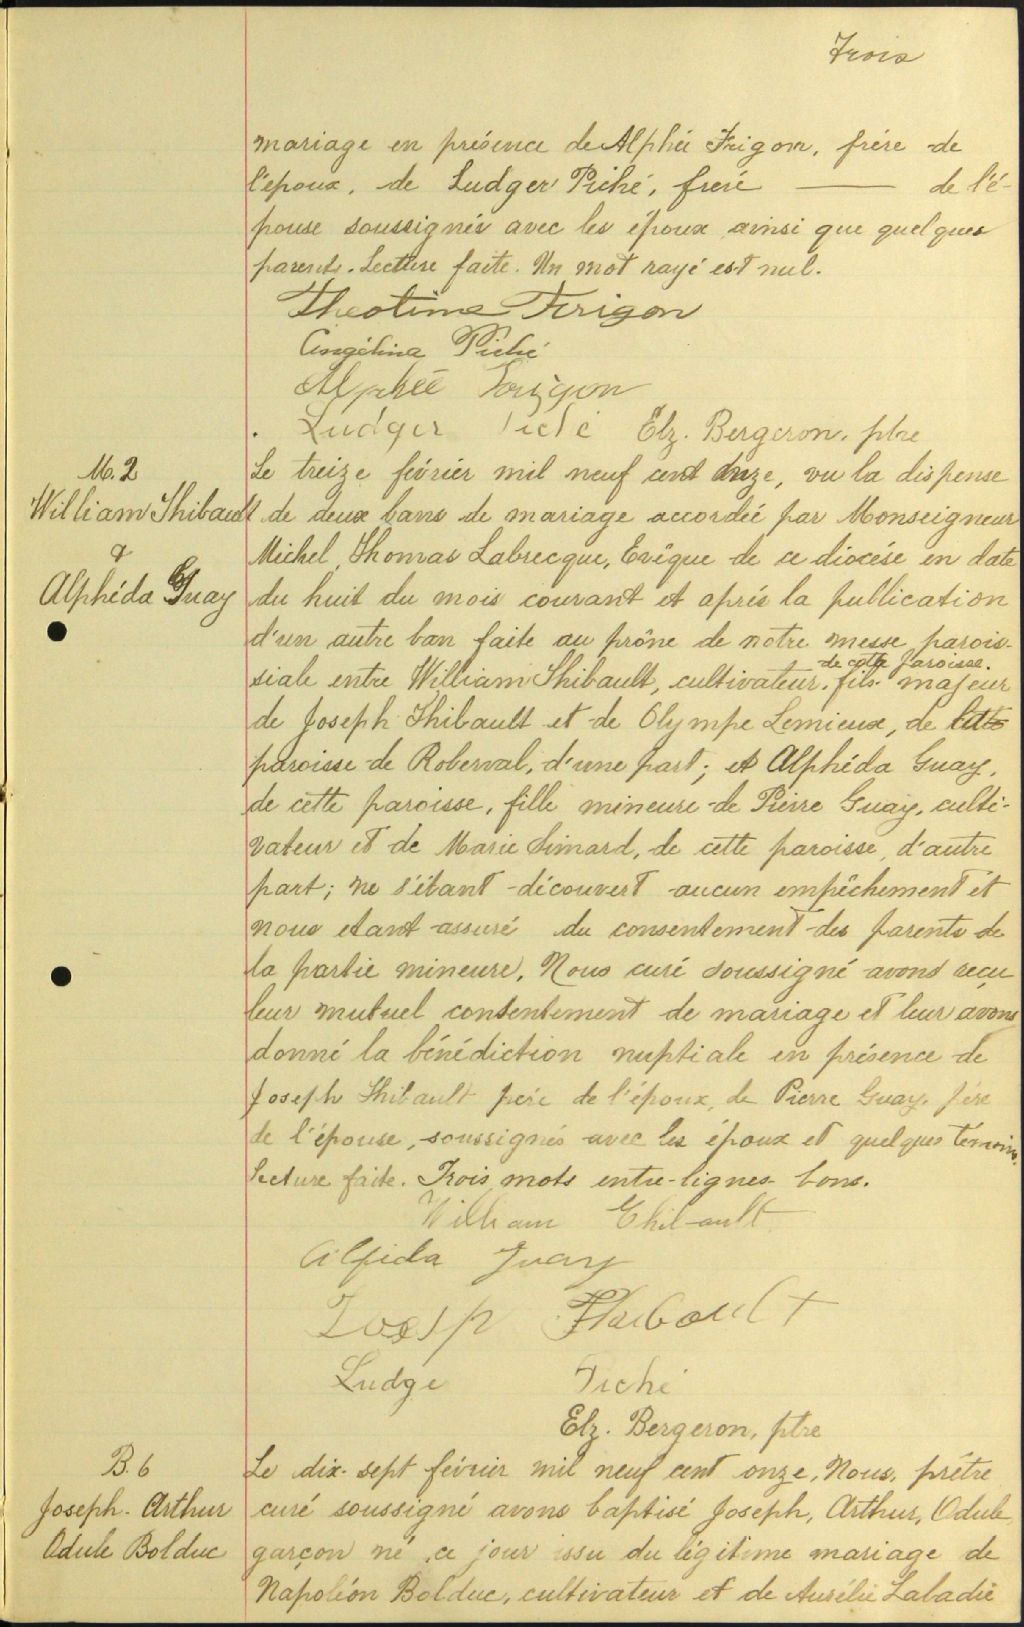 Trois
mariage en présence de Alphée Frigon, frère de
l'époux, de Ludger Piché, frère —— de l'é-
pouse soussignés avec les époux ainsi que quelques
parents. Lecture faite. Un mot rayé est nul.
Theotime Frigon
Angélina Piché
Alphée Frigon
Ludger Piché Elz. Bergeron, ptre
M. 2
William Thibault
&
Alphéda Guay
Le treize février mil neuf cent onze, vu la dispense
de deux bans de mariage accordée par Monseigneur
Michel, Thomas Labrecque, Evêque de ce diocèse en date
du huit du mois courant et après la publication
d'un autre ban faite au prône de notre messe parois-
de cette paroisse.
siale entre William Thibault, cultivateur, fils majeur
de Joseph Thibault et de Olympe Lemieux, de
paroisse de Roberval, d'une part; et Alphéda Guay,
de cette paroisse, fille mineure de Pierre Guay, culti-
vateur et de Marie Simard, de cette paroisse, d'autre
part; ne s'étant découvert aucun empêchement et
nous etant assuré du consentement des parents de
la partie mineure, Nous curé soussigné avons reçu
leur mutuel consentement de mariage et leur avons
donné la bénédiction nuptiale en présence de
Joseph Thibault père de l'époux, de Pierre Guay, père
de l'épouse, soussignés avec les époux et quelques témoins.
Lecture faite. Trois mots entre-lignes bons.
William Thibault
Alfida Guay
Josesp Thibault
Ludge Piché
Elz. Bergeron, ptre
B. 6
Joseph. Arthur
Odule Bolduc
Le dix-sept février mil neuf cent onze, Nous, prêtre
curé soussigné avons baptisé Joseph, Arthur, Odule,
garçon né ce jour issu du légitime mariage de
Napoléon Bolduc, cultivateur et de Aurélie Labadie